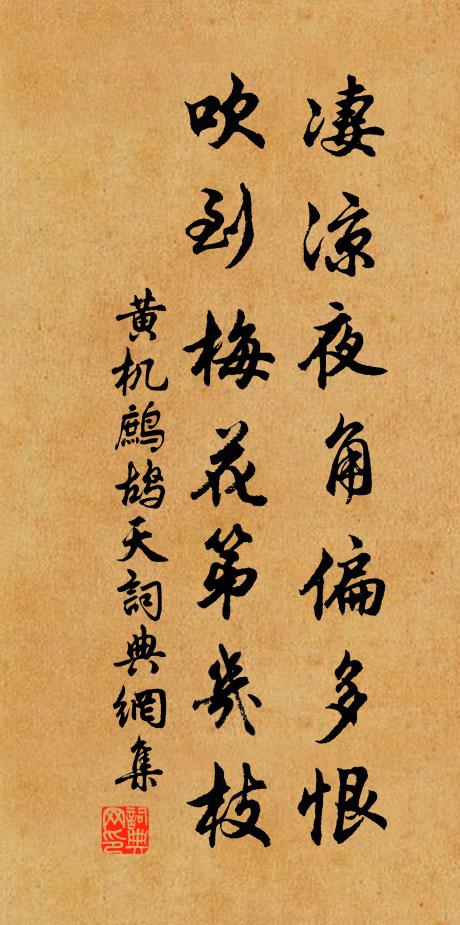 凄涼夜角偏多恨
吹到梅花第幾枝
黄机鷓鴣天詞典網集
詞典网印